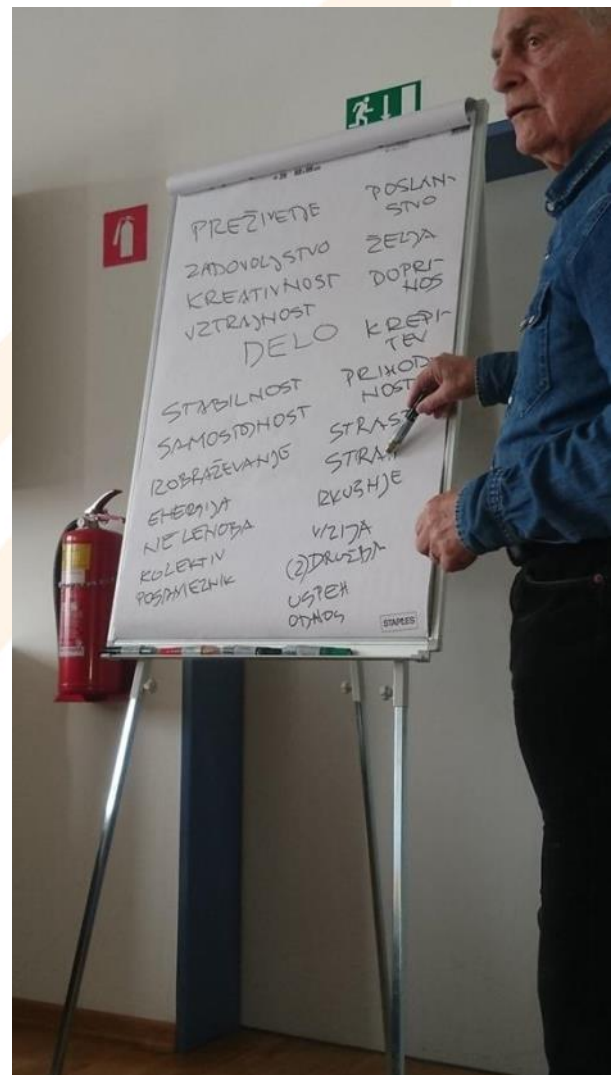 PREŽIVETJE
ZADOVOLJSTVO
KREATIVNOST
VZTRAJNOST
DELO
STABILNOST
SAMOSTOJNOST
IZOBRAŽEVANJE
ENERGIJA
NE LENOBA
KOLEKTIV
POSAMEZNIK
POSLAN-
STVO
ŽELJA
DOPRI-
NOS
KREPI-
TEV
PRIHOD
NOST
STRAST
STRAH
IZKUŠNJE
VIZIJA
(Z)DRUŽBA
USPEH
ODNOS
STAPLES